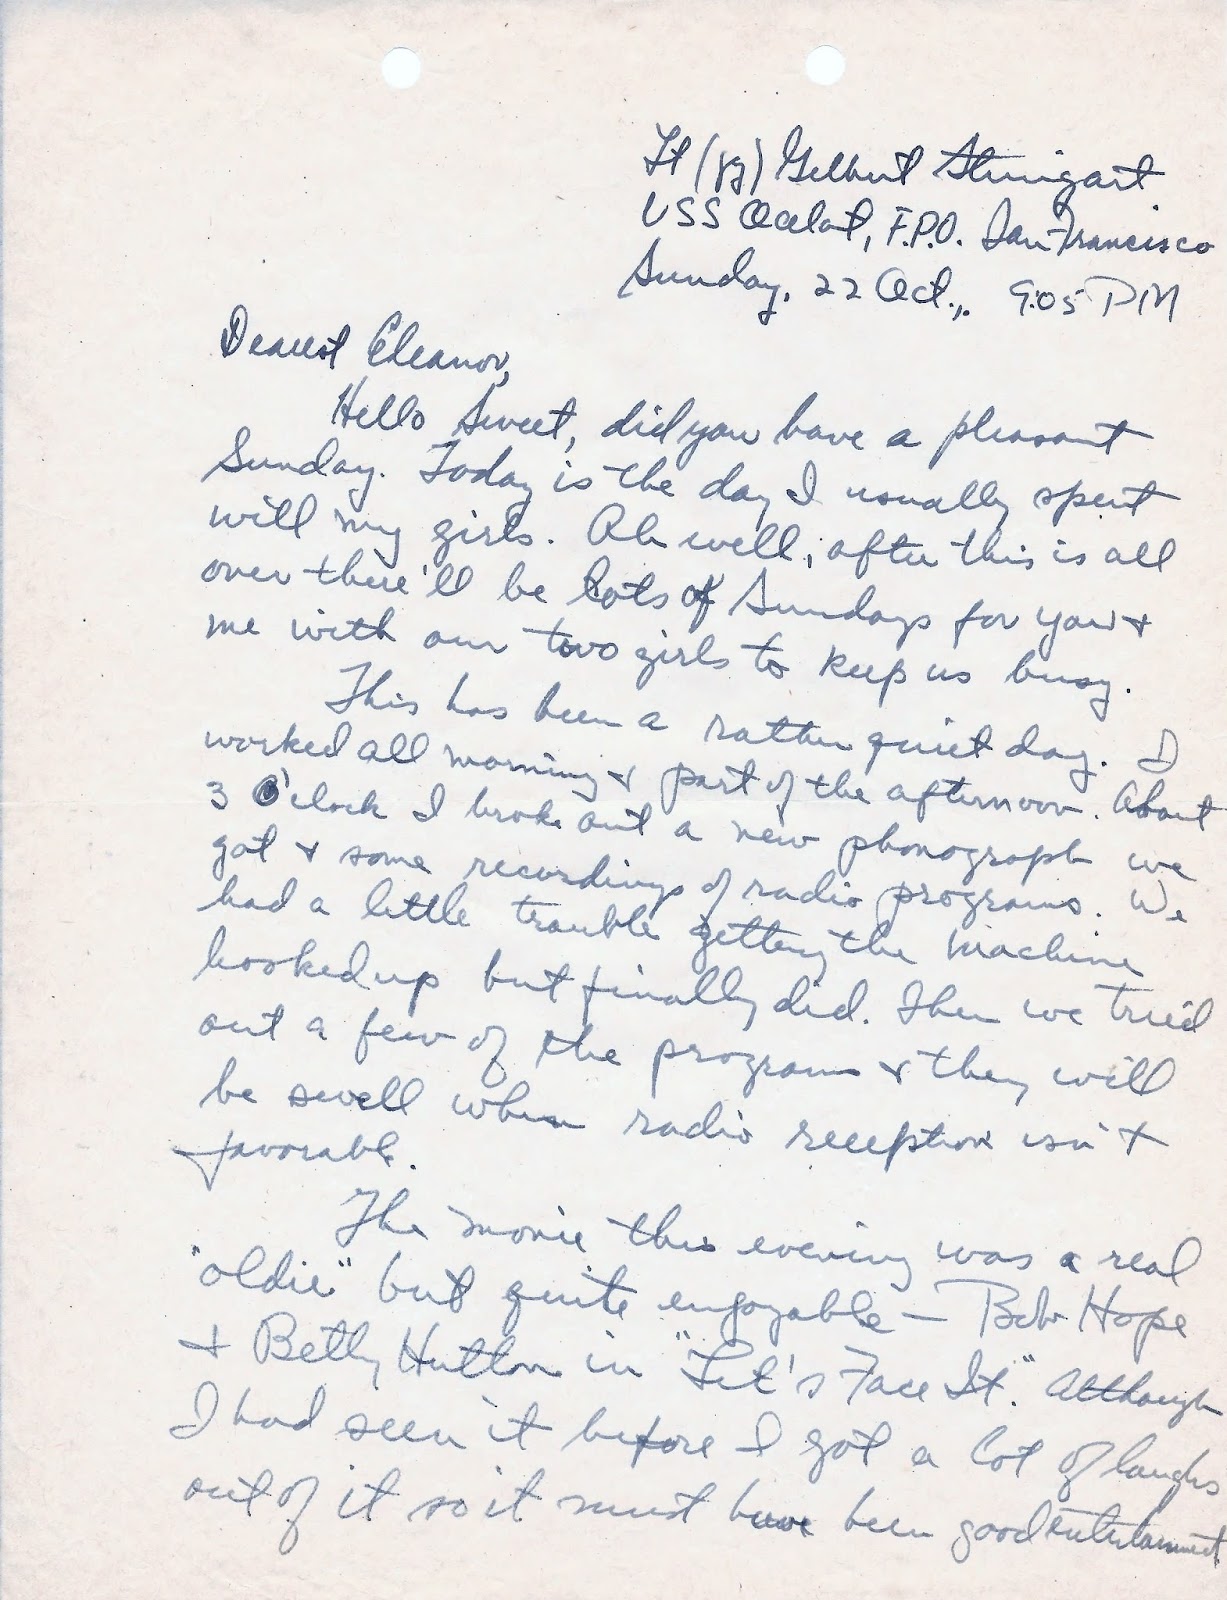 Lt (jg) Gilbert Steingart
USS Ocelot, F.P.O. San Francisco
Sunday, 22 Oct., 9:05 PM
Dearest Eleanor,
Hello Sweet, did you have a pleasant
Sunday. Today is the day I usually spent
with my girls. Ah well, after this is all
over there'll be lots of Sundays for you +
me with our two girls to keep us busy.
This has been a rather quiet day. I
worked all morning + part of the afternoon. About
3 O'clock I broke out a new phonograph we
got + some recordings of radio programs. We
had a little trouble getting the machine
hooked up but finally did. Then we tried
out a few of the programs + they will
be swell when radio reception isn't
favorable.
The movie this evening was a real
"oldie" but quite enjoyable – Bob Hope
+ Betty Hutton in "Let's Face It." Although
I had seen it before I got a lot of laughs
out of it so it must have been good entertainment.